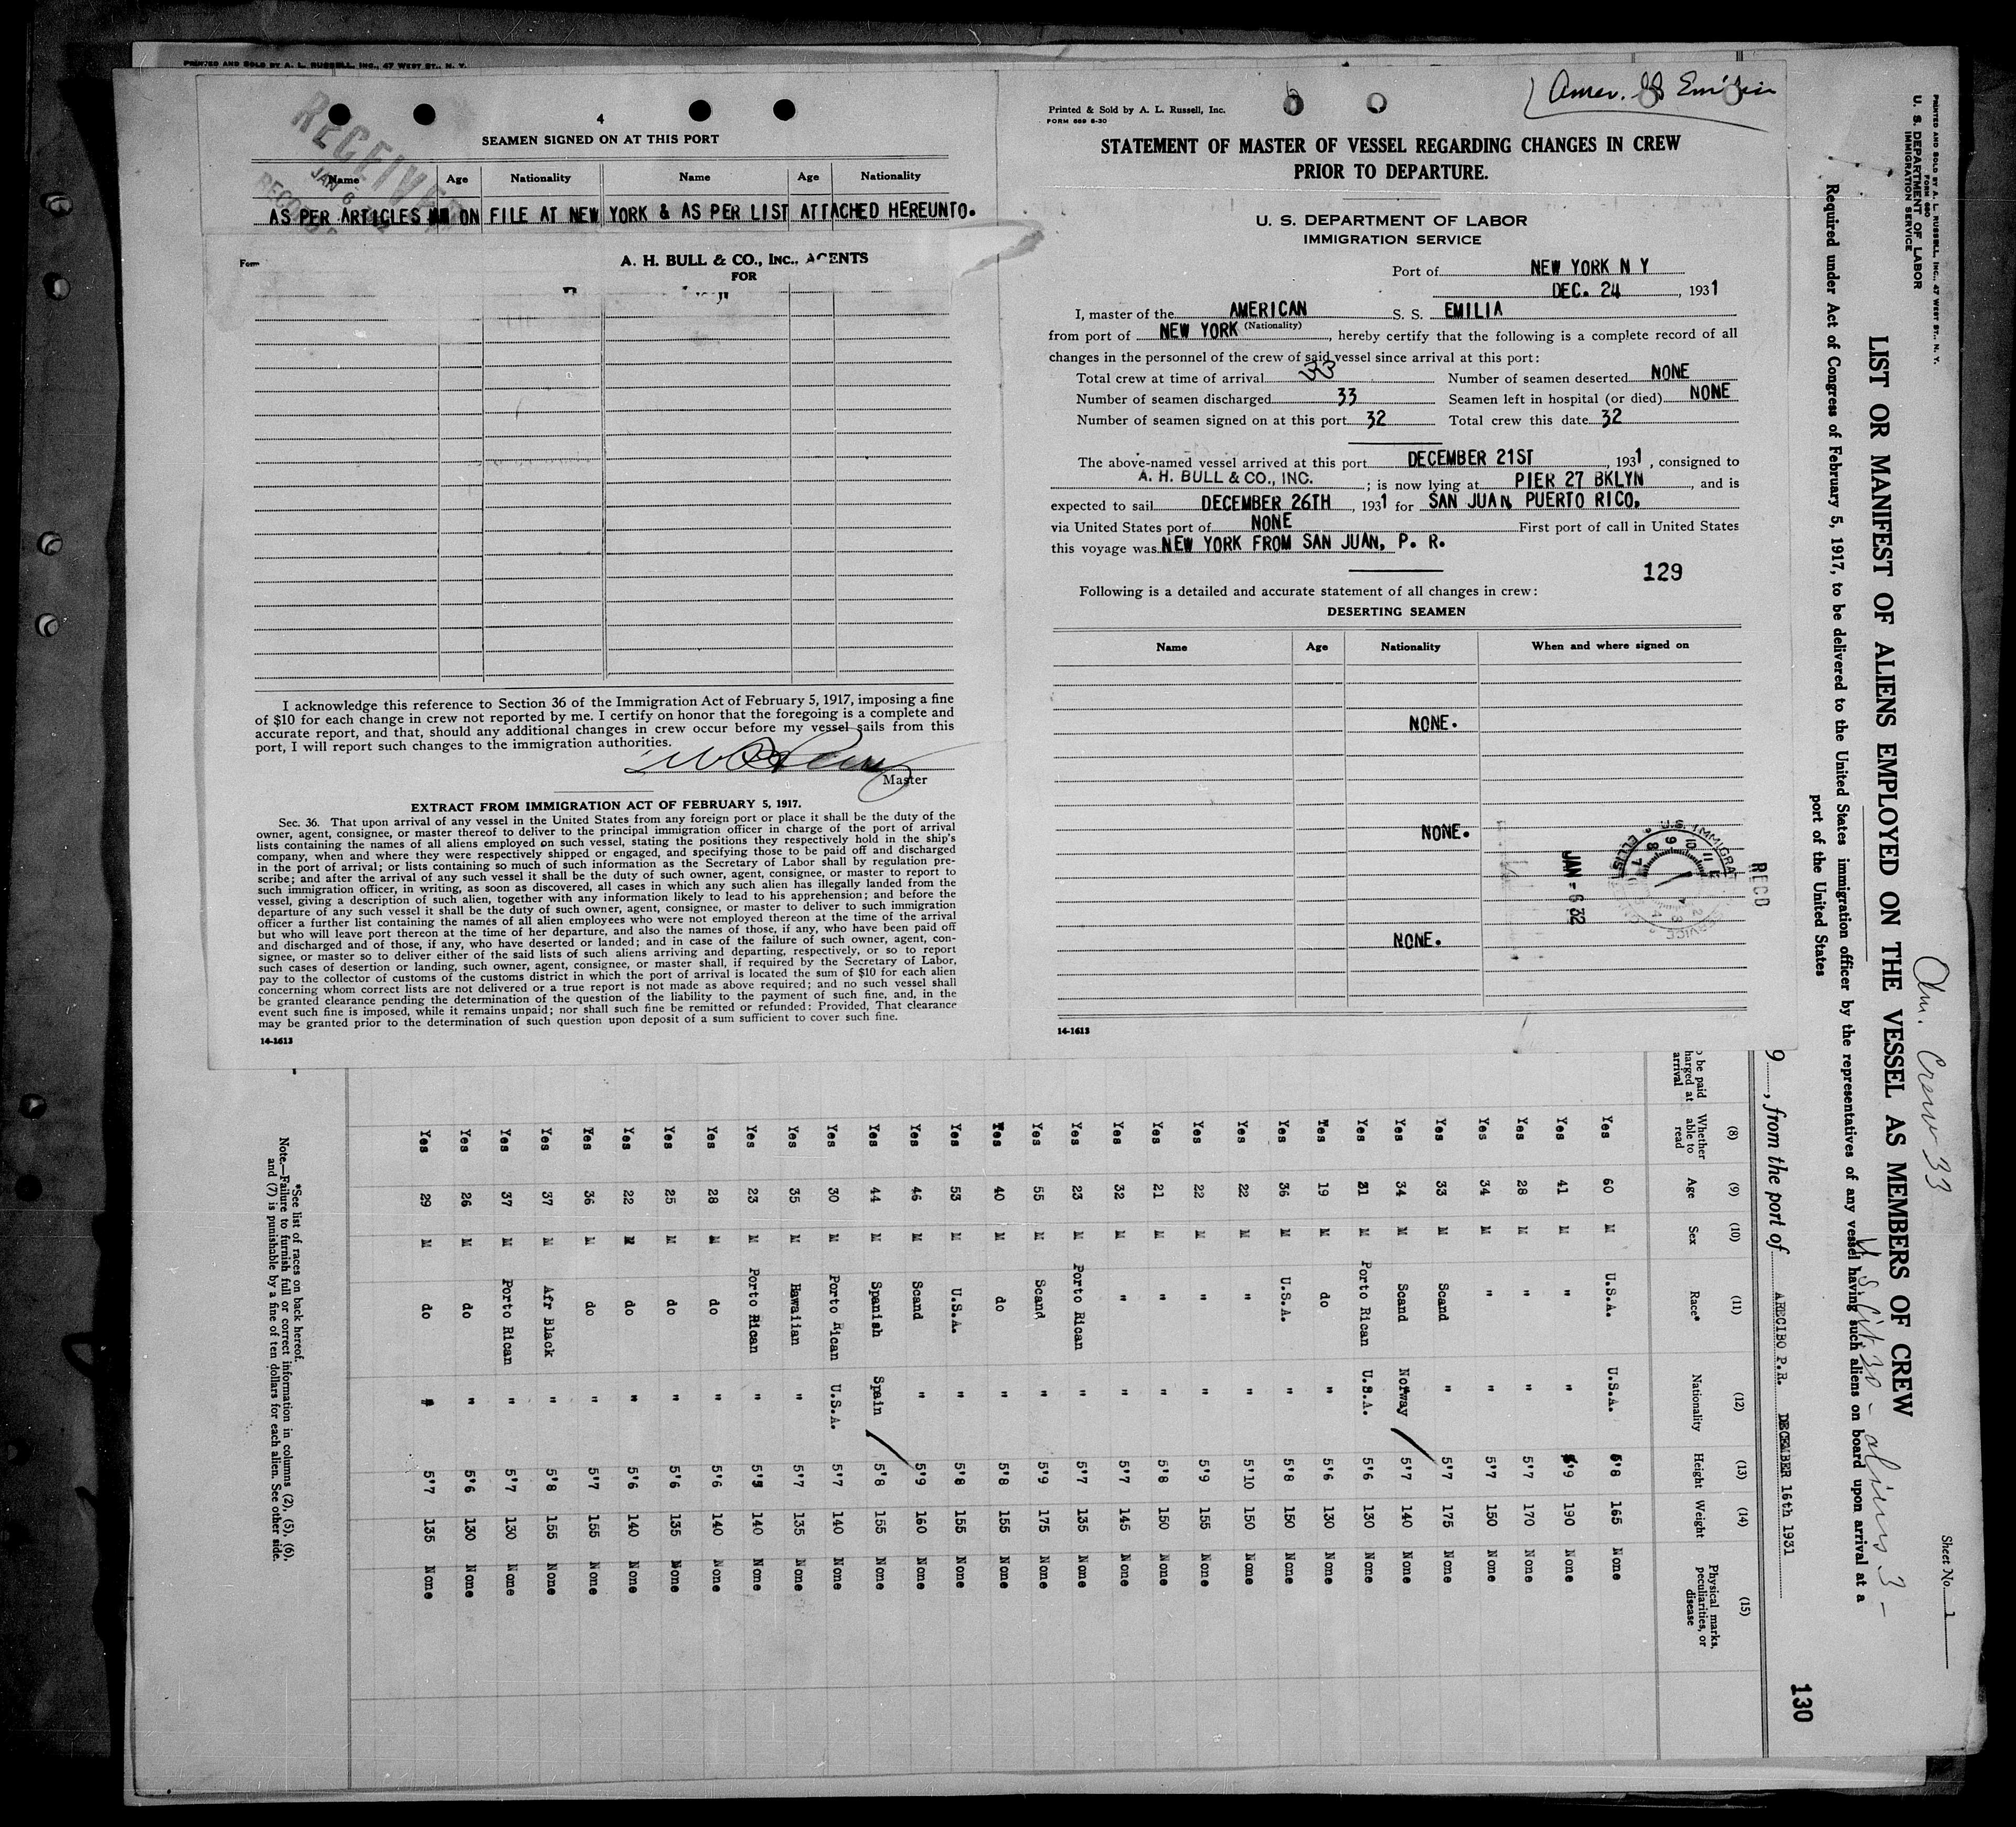 PRINTED AND SOLD BY A. L. RUSSELL, INC., 47 WEST ST., N. Y.
RECEIVED
JAN 6
4
SEAMEN SIGNED ON AT THIS PORT
Name Age Nationality Name Age Nationality
AS PER ARTICLES ON FILE AT NEW YORK & AS PER LIST ATTACHED HEREUNTO.
Form
A. H. BULL & CO., INC., AGENTS
FOR
I acknowledge this reference to Section 36 of the Immigration Act of February 5, 1917, imposing a fine
of $10 for each change in crew not reported by me. I certify on honor that the foregoing is a complete and
accurate report, and that, should any additional changes in crew occur before my vessel sails from this
port, I will report such changes to the immigration authorities.
Master
EXTRACT FROM IMMIGRATION ACT OF FEBRUARY 5, 1917.
Sec. 36. That upon arrival of any vessel in the United States from any foreign port or place it shall be the duty of the
owner, agent, consignee, or master thereof to deliver to the principal immigration officer in charge of the port of arrival
lists containing the names of all aliens employed on such vessel, stating the positions they respectively hold in the ship's
company, when and where they were respectively shipped or engaged, and specifying those to be paid off and discharged
in the port of arrival; or lists containing so much of such information as the Secretary of Labor shall by regulation pre-
scribe; and after the arrival of any such vessel it shall be the duty of such owner, agent, consignee, or master to report to
such immigration officer, in writing, as soon as discovered, all cases in which any such alien has illegally landed from the
vessel, giving a description of such alien, together with any information likely to lead to his apprehension; and before the
departure of any such vessel it shall be the duty of such owner, agent, consignee, or master to deliver to such immigration
officer a further list containing the names of all alien employees who were not employed thereon at the time of the arrival
but who will leave port thereon at the time of her departure, and also the names of those, if any, who have been paid off
and discharged and of those, if any, who have deserted or landed; and in case of the failure of such owner, agent, con-
signee, or master so to deliver either of the said lists of such aliens arriving and departing, respectively, or so to report
such cases of desertion or landing, such owner, agent, consignee, or master shall, if required by the Secretary of Labor,
pay to the collector of customs of the customs district in which the port of arrival is located the sum of $10 for each alien
concerning whom correct lists are not delivered or a true report is not made as above required; and no such vessel shall
be granted clearance pending the determination of the question of the liability to the payment of such fine, and, in the
event such fine is imposed, while it remains unpaid; nor shall such fine be remitted or refunded: Provided, That clearance
may be granted prior to the determination of such question upon deposit of a sum sufficient to cover such fine.
14-1613
Amer. SS Emilia
Printed & Sold by A. L. Russell, Inc.
FORM 689 6-30
STATEMENT OF MASTER OF VESSEL REGARDING CHANGES IN CREW
PRIOR TO DEPARTURE.
U. S. DEPARTMENT OF LABOR
IMMIGRATION SERVICE
Port of NEW YORK N Y
DEC. 24, 1931
I, master of the AMERICAN S. S. EMILIA
from port of NEW YORK (Nationality), hereby certify that the following is a complete record of all
changes in the personnel of the crew of said vessel since arrival at this port:
Total crew at time of arrival 33 Number of seamen deserted NONE
Number of seamen discharged 33 Seamen left in hospital (or died) NONE
Number of seamen signed on at this port 32 Total crew this date 32
The above-named vessel arrived at this port DECEMBER 21ST, 1931, consigned to
A. H. BULL & CO., INC.; is now lying at PIER 27 BKLYN, and is
expected to sail DECEMBER 26TH, 1931 for SAN JUAN, PUERTO RICO.
via United States port of NONE First port of call in United States
this voyage was NEW YORK FROM SAN JUAN, P. R.
129
Following is a detailed and accurate statement of all changes in crew:
DESERTING SEAMEN
Name Age Nationality When and where signed on
NONE.
NONE.
NONE.
RECD
JAN - 6 32
14-1613
PRINTED AND SOLD BY A. L. RUSSELL, INC., 47 WEST ST., N. Y.
FORM 680
U. S. DEPARTMENT OF LABOR
IMMIGRATION SERVICE
Sheet No. 1
Am. Crew 33
U.S. Cit. 30 - aliens 3 -
LIST OR MANIFEST OF ALIENS EMPLOYED ON THE VESSEL AS MEMBERS OF CREW
Required under Act of Congress of February 5, 1917, to be delivered to the United States immigration officer by the representatives of any vessel having such aliens on board upon arrival at a
port of the United States
9, from the port of ARECIBO P.R. DECEMBER 16th 1931
130
be paid harged at arrival (8) Whether able to read (9) Age (10) Sex (11) Race* (12) Nationality (13) Height (14) Weight (15) Physical marks, peculiarities, or disease
Yes 60 M U.S.A. U.S.A. 5'8 165 None
Yes 41 M " " 5'9 190 None
Yes 28 M " " 5'7 170 None
Yes 34 M " " 5'7 150 None
Yes 33 M Scand " 5'7 175 None
Yes 34 M Scand Norway 5'7 140 None
Yes 31 M Porto Rican U.S.A. 5'6 130 None
Yes 19 M do " 5'6 130 None
Yes 36 M U.S.A. " 5'8 150 None
Yes 22 M " " 5'10 150 None
Yes 22 M " " 5'9 155 None
Yes 21 M " " 5'8 150 None
Yes 32 M " " 5'7 145 None
Yes 23 M Porto Rican " 5'7 135 None
Yes 55 M Scand " 5'9 175 None
Yes 40 M do " 5'8 155 None
Yes 53 M U.S.A. " 5'8 155 None
Yes 46 M Scand " 5'9 160 None
Yes 44 M Spanish Spain 5'8 155 None
Yes 30 M Porto Rican U.S.A. 5'7 140 None
Yes 35 M Hawaiian " 5'7 135 None
Yes 23 M Porto Rican " 5'5 140 None
Yes 28 M do " 5'6 140 None
Yes 25 M do " 5'6 135 None
Yes 22 M do " 5'6 140 None
Yes 36 M do " 5'7 155 None
Yes 37 M Afr Black " 5'8 155 None
Yes 37 M Porto Rican " 5'7 130 None
Yes 26 M do " 5'6 130 None
Yes 29 M do " 5'7 135 None
*See list of races on back hereof.
Note.—Failure to furnish full or correct information in columns (2), (5), (6),
and (7) is punishable by a fine of ten dollars for each alien. See other side.